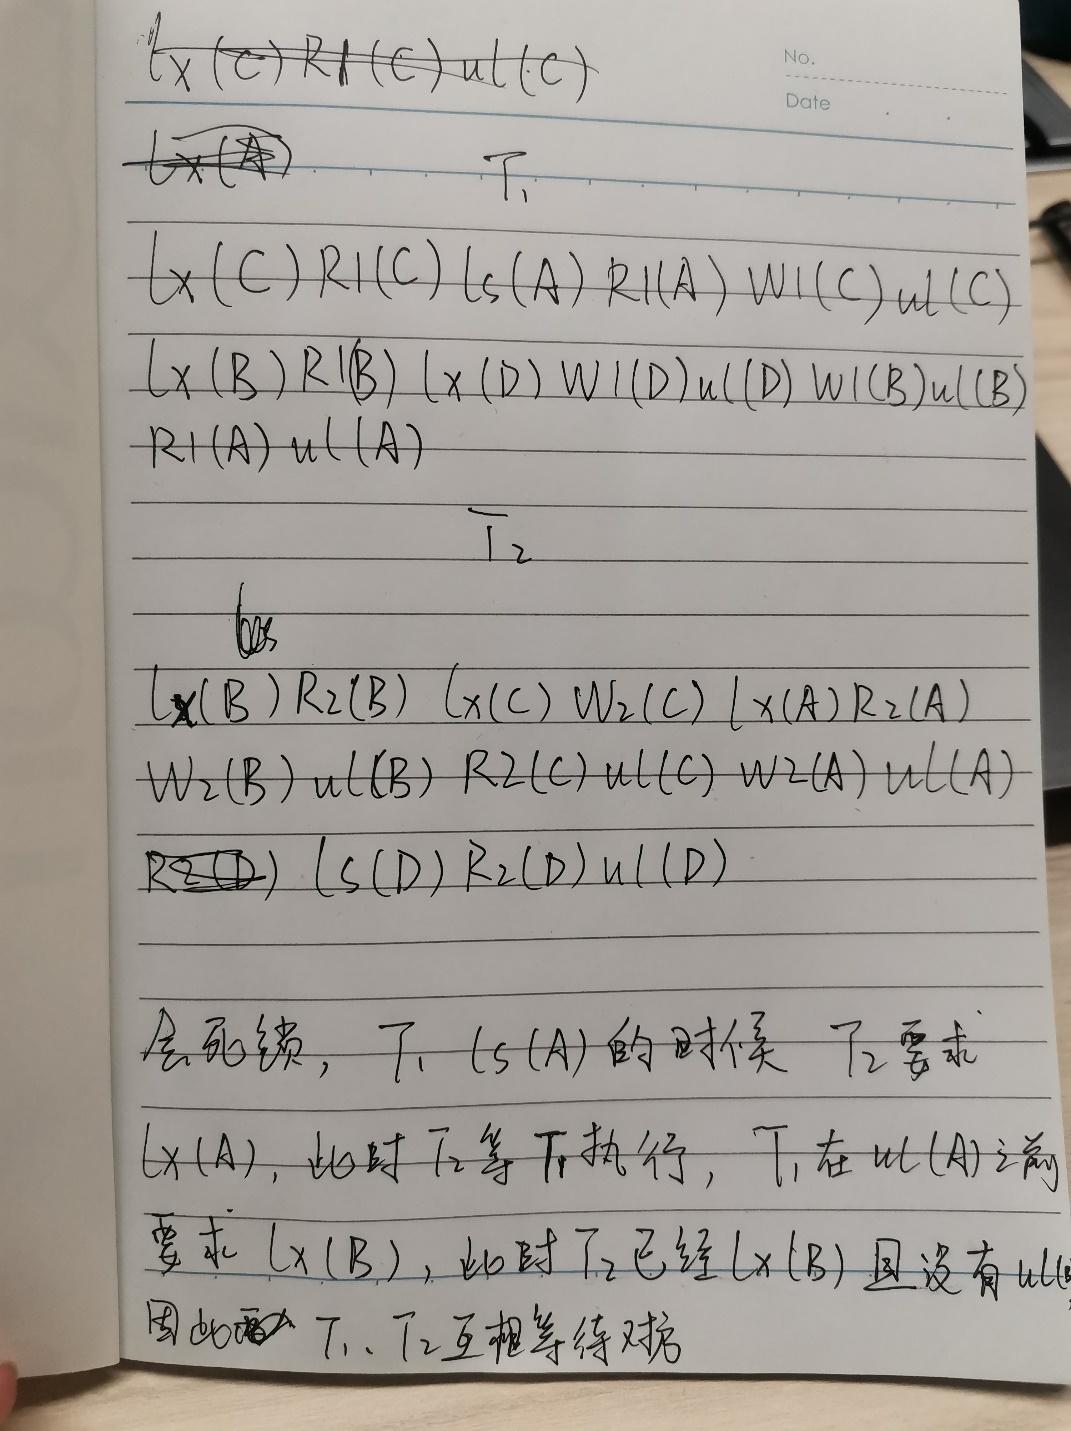 lx(C) R1(C) ul(C)
No.
Date
lx(A)
T₁
lx(C) R1(C) ls(A) R1(A) W1(C) ul(C)
lx(B) R1(B) lx(D) W1(D) ul(D) W1(B) ul(B)
R1(A) ul(A)
T₂
lx(B) R2(B) lx(C) W2(C) lx(A) R2(A)
W2(B) ul(B) R2(C) ul(C) W2(A) ul(A)
R2(D) ls(D) R2(D) ul(D)
会死锁, T₁ ls(A)的时候 T₂要求
lx(A), 此时T₂等T₁执行, T₁在ul(A)之前
要求lx(B), 此时T₂已经lx(B)且没有ul(B)
因此 T₁、T₂互相等待对方